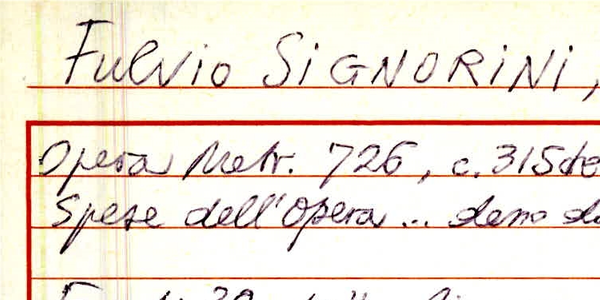 Fulvio SIGNORINI,
Opera Metr. 726, c. 315
Spese dell'Opera... deno